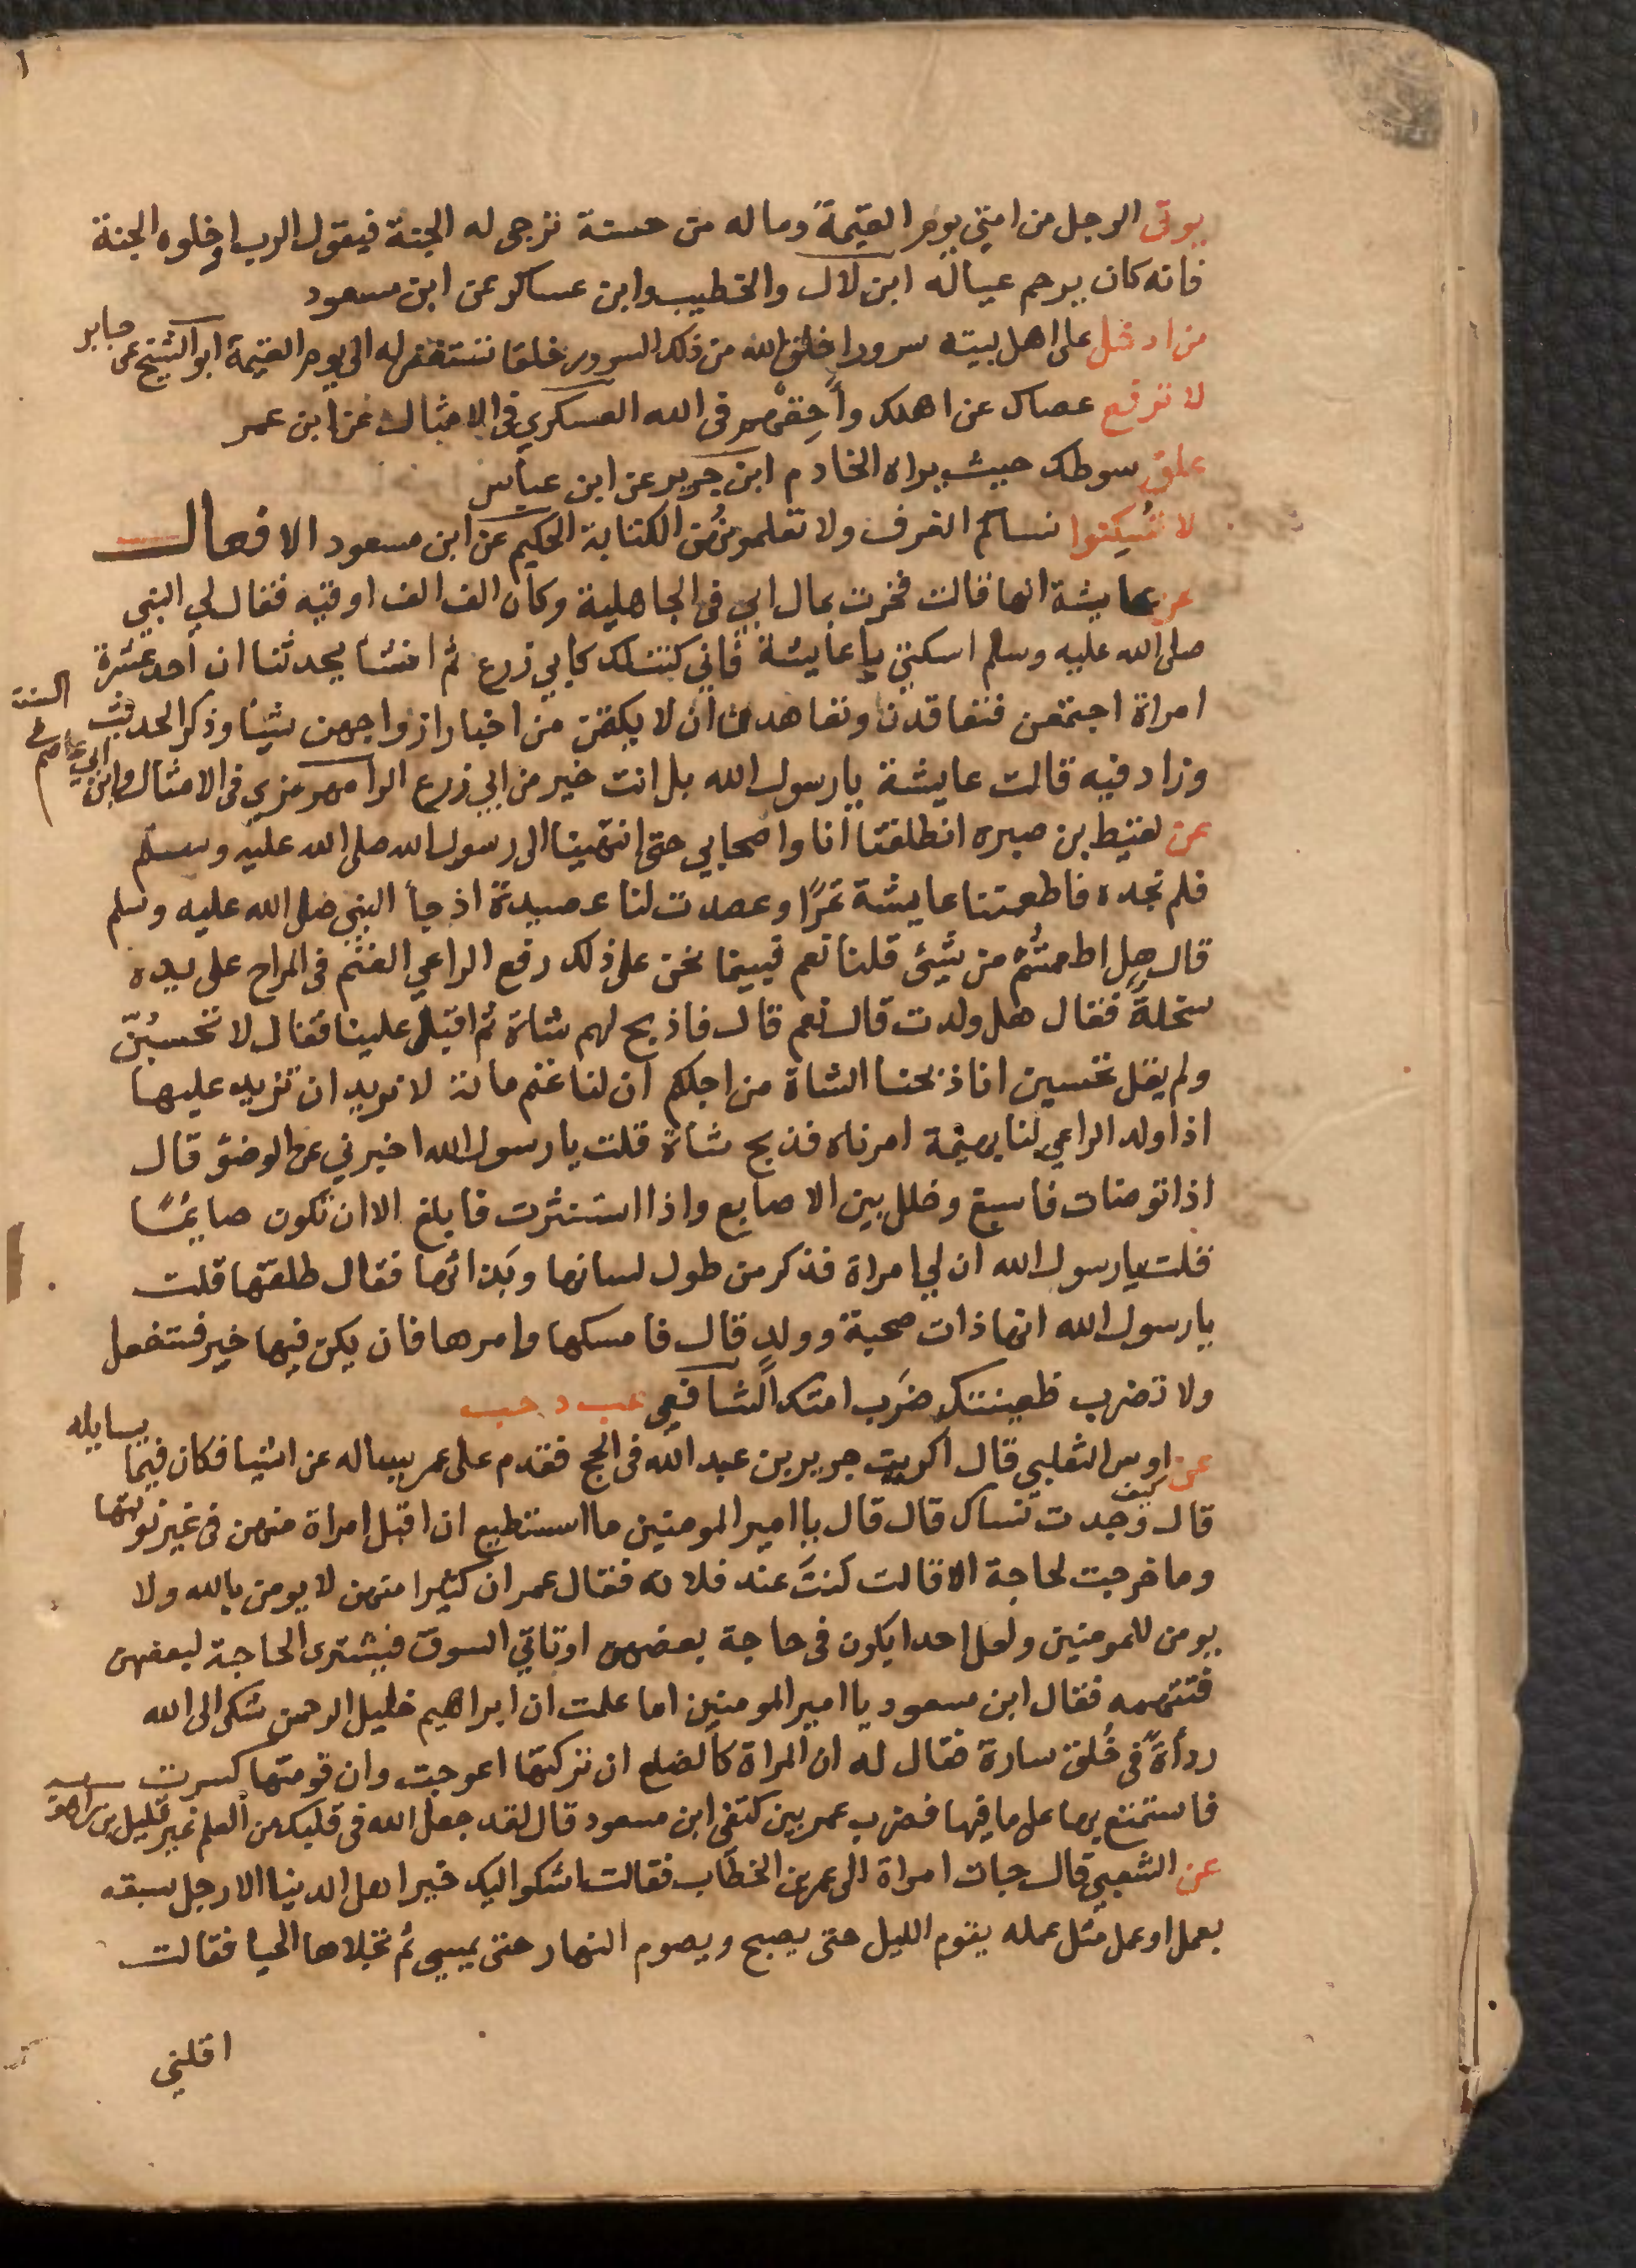 ١
يوتى الرجل من امتي يوم القيمة وماله من حسنة ترجى له الجنة فيقول الرب ادخلوه الجنة
فانه كان يرحم عياله ابن لال والخطيب وابن عساكر عن ابن مسعود
من ادخل على اهل بيته سرورا خلق الله من ذلك السرور خلقا تستغفر له الى يوم القيمة ابو الشيخ عن جابر
لا ترفع عصاك عن اهلك وأخِفْهم في الله العسكري في الامثال عن ابن عمر
علق سوطك حيث يراه الخادم ابن جرير عن ابن عباس
لا تُسكنوا نساكم الغرف ولا تعلموهُن الكتابة الحكيم عن ابن مسعود الافعال
عن عايشة انها قالت فخرت بمال ابي في الجاهلية وكان الف الف اوقيه فقال لي النبي
صلى الله عليه وسلم اسكتي يا عايشة فاني كنت لك كابي زرع ثم انشأ يحدثنا ان احد عشرة
امراة اجتمعن فتعاقدن وتعاهدن ان لا يكتمن من اخبار ازواجهن شيئا وذكر الحديث
وزاد فيه قالت عايشة يا رسول الله بل انت خير من ابي زرع الرامهرمزي في الامثال وابن ابي عاصم في السنة
عن لقيط بن صبره انطلقنا انا واصحابي حتى انتهينا الى رسول الله صلى الله عليه وسلم
فلم نجده فاطعمتنا عايشة تمرًا وعصدت لنا عصيدة اذ جأ النبي صلى الله عليه وسلم
قال هل اطعمتُم من شيئ قلنا نعم فبينما نحن على ذلك رفع الراعي الغنم في المراح على يده
سخلةً فقال هل ولدت قال نعم قال فاذبح لهم شاة ثم اقبل علينا فقال لا تحسبُنّ
ولم يقل تحسبن انا ذبحنا الشاة من اجلكم ان لنا غنم مائة لا نريد ان تزيد عليها
اذا ولد الراعي لنا بهيمة امرناه فذبح شاة قلت يا رسول الله اخبرني عن الوضؤ قال
اذا توضات فاسبغ وخلل بين الاصابع واذا استنثرت فابلغ الا ان تكون صايمًا
قلت يا رسول الله ان لي امراة فذكر من طول لسانها وبَذائها فقال طلقها قلت
يا رسول الله انها ذات صحبة وولد قال فامسكها وامرها فان يكن فيها خير فستفعل
ولا تضرب ظعينتك ضَرب امتك الشافعي عب د حب
عن اوس الثعلبي قال اكريت جرير بن عبد الله في الحج فقدم على عمر يساله عن اشيا فكان فيما يسايله
قال كيف وجدت نساك قال قال يا امير المومنين ما استطيع ان اقبل امراة منهن في غير نوبتها
وما خرجت لحاجة الا قالت كنتَ عند فلانه فقال عمر ان كثيرا منهن لا يومن بالله ولا
يومن للمومنين ولعل احدا يكون في حاجة بعضهن او تاتي السوق فيشترى الحاجة لبعضهن
فتتهمه فقال ابن مسعود يا امير المومنين اما علمت ان ابراهيم خليل الرحمن شكى الى الله
ردأةً في خُلق سارة فقال له ان المراة كالضلع ان تركتها اعوجت وان قومتها كسرت
فاستمتع بها على ما فيها فضرب عمر بين كتفي ابن مسعود قال لقد جعل الله في قلبك من العلم غير قليل
عن الشعبي قال جات امراة الى عمر بن الخطاب فقالت اشكوا اليك خير اهل الدنيا الا رجل سبقه
بعمل او عمل مثل عمله يقوم الليل حتى يصبح ويصوم النهار حتى يمسي ثم تجلاها الحيا فقالت
اقلني